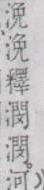 浼浼釋潤潤。河)